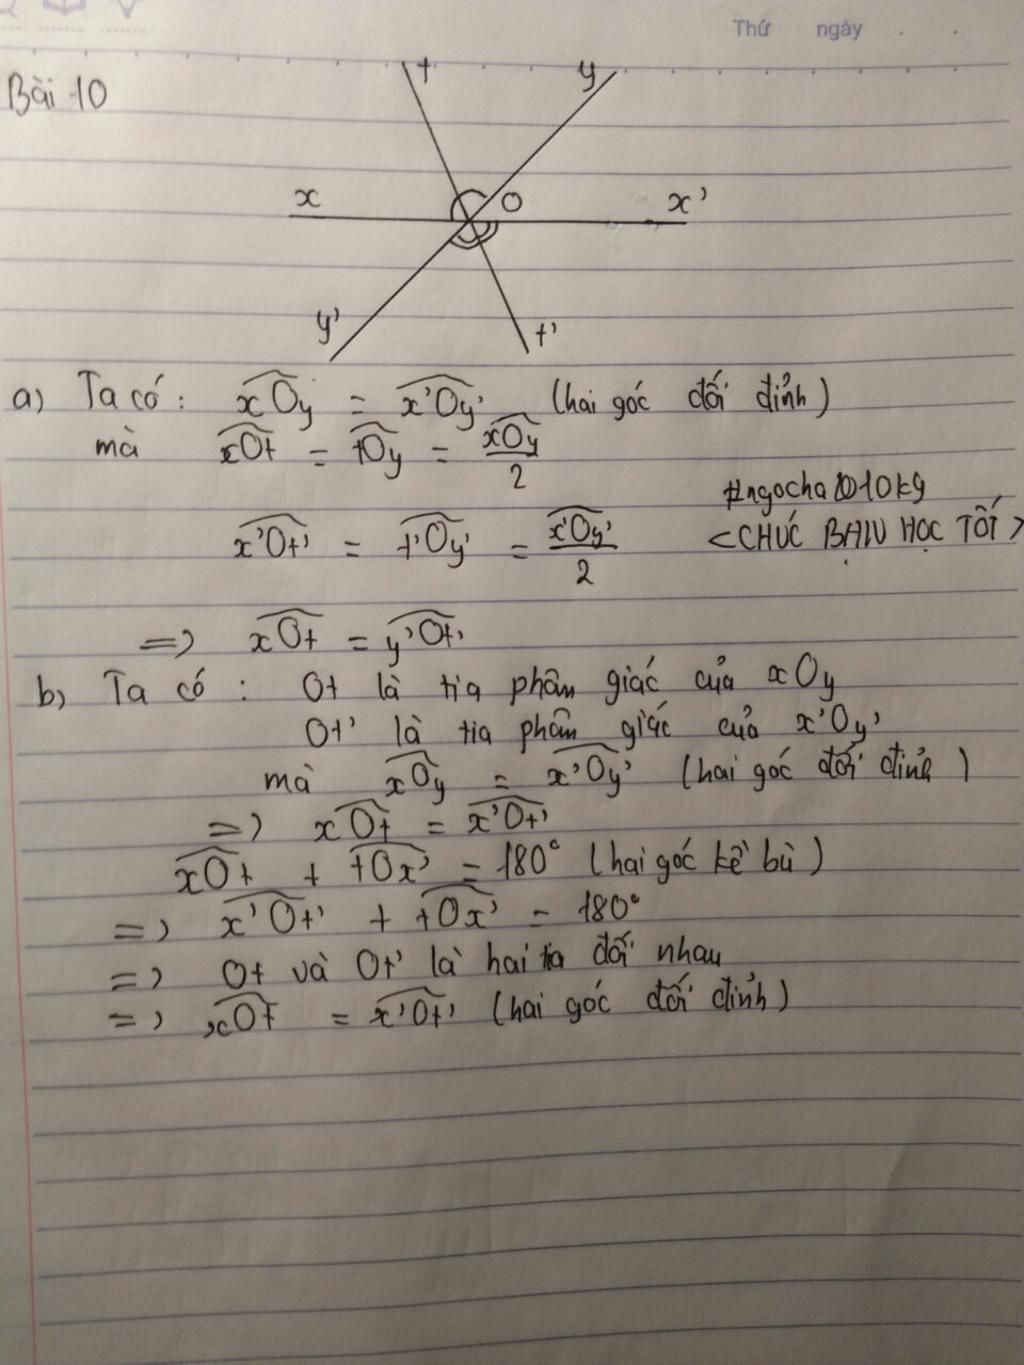 Thứ ngày
Bài 10
t y
x O x'
y' t'
a) Ta có: xOy = x'Oy' (hai góc đối đỉnh)
mà xOt = tOy = xOy/2
#ngocha1010kg
x'Ot' = t'Oy' = x'Oy'/2 <CHÚC BẠN HỌC TỐT>
=> xOt = y'Ot'
b) Ta có : Ot là tia phân giác của xOy
Ot' là tia phân giác của x'Oy'
mà xOy = x'Oy' (hai góc đối đỉnh)
=> xOt = x'Ot'
xOt + tOx' = 180° (hai góc kề bù)
=> x'Ot' + tOx' = 180°
=> Ot và Ot' là hai tia đối nhau
=> xOt = x'Ot' (hai góc đối đỉnh)